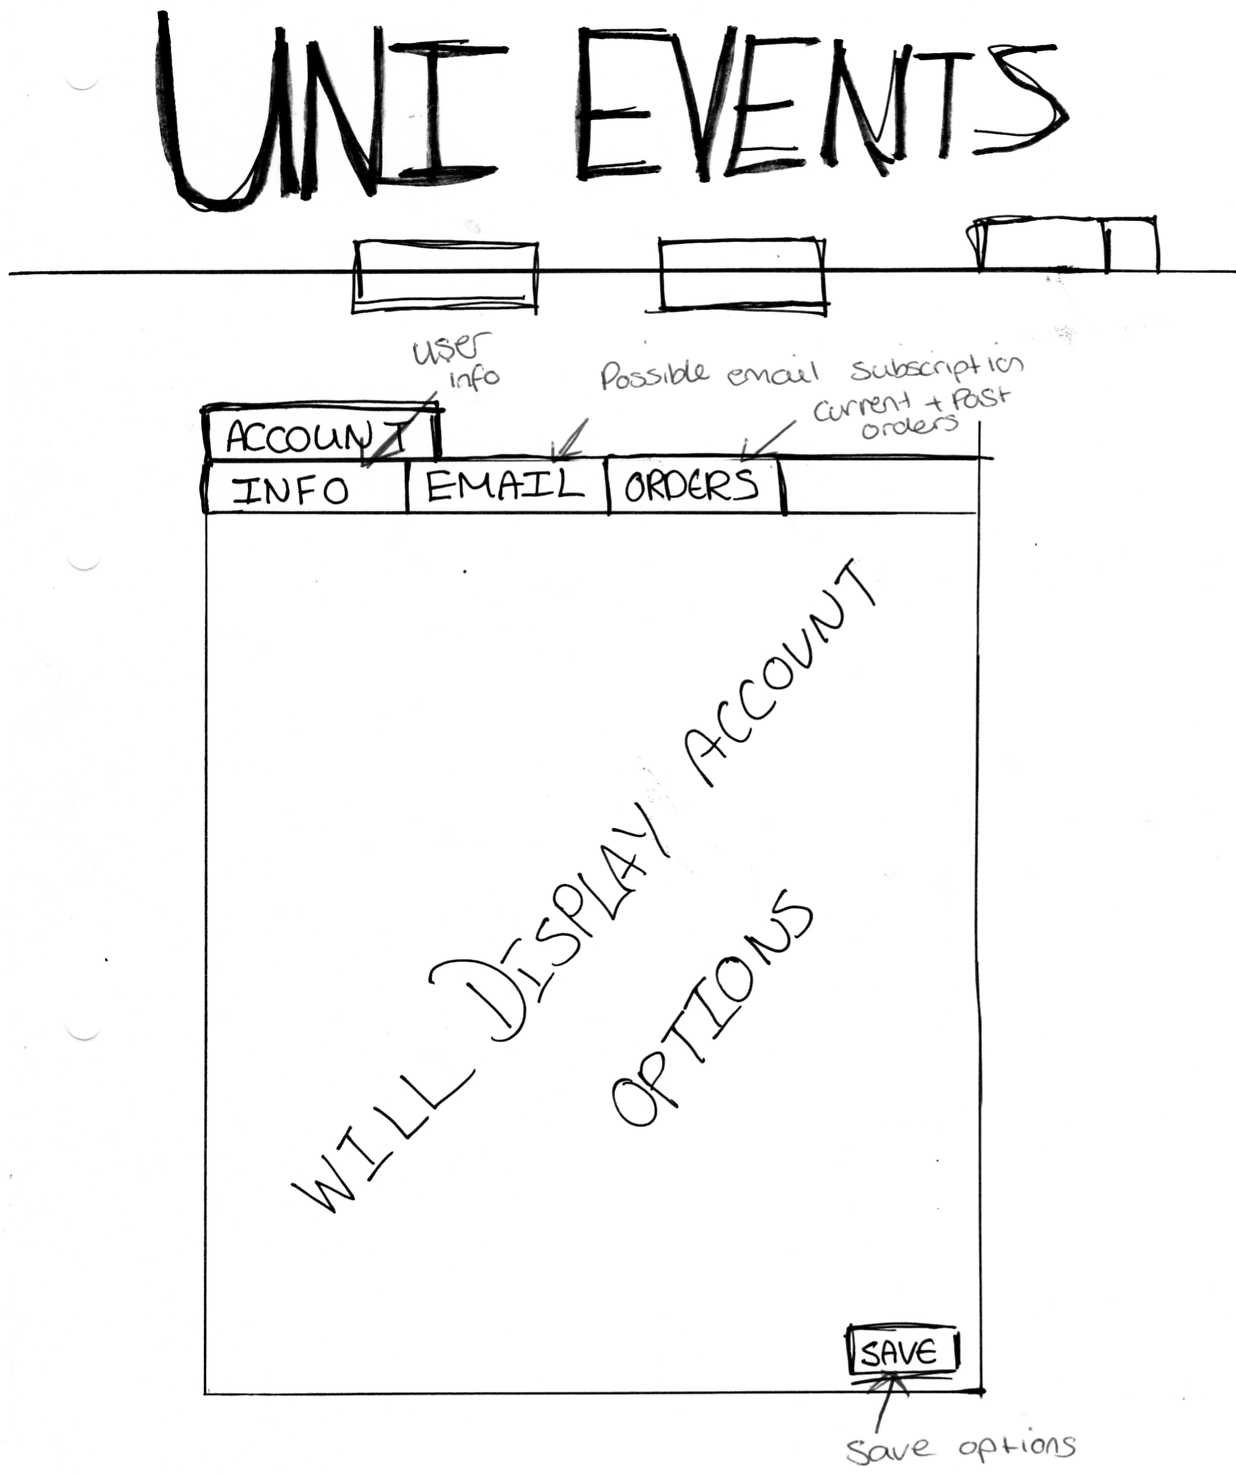 UNI EVENTS
user
info
Possible email subscription
current + Past
orders
ACCOUNT
INFO
EMAIL
ORDERS
WILL DISPLAY ACCOUNT
OPTIONS
SAVE
save options